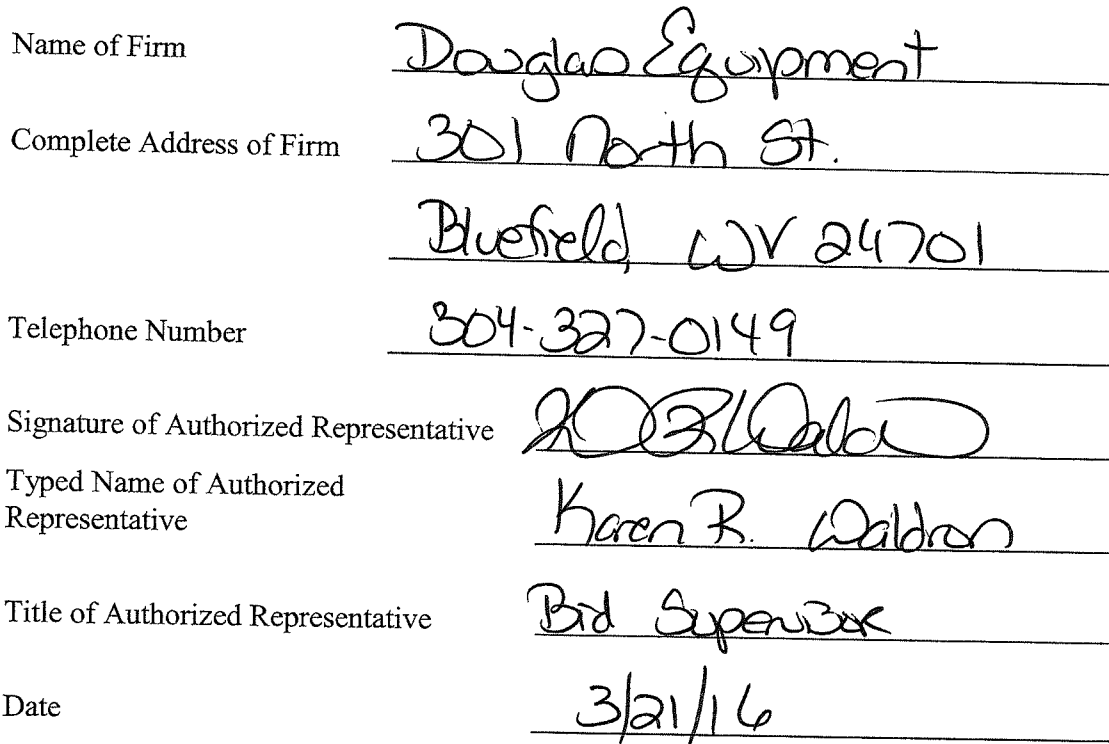 Name of Firm Douglas Equipment
Complete Address of Firm 301 North St.
Bluefield, WV 24701
Telephone Number 304-327-0149
Signature of Authorized Representative
Typed Name of Authorized
Representative Karen R. Waldron
Title of Authorized Representative Bid Supervisor
Date 3/21/16